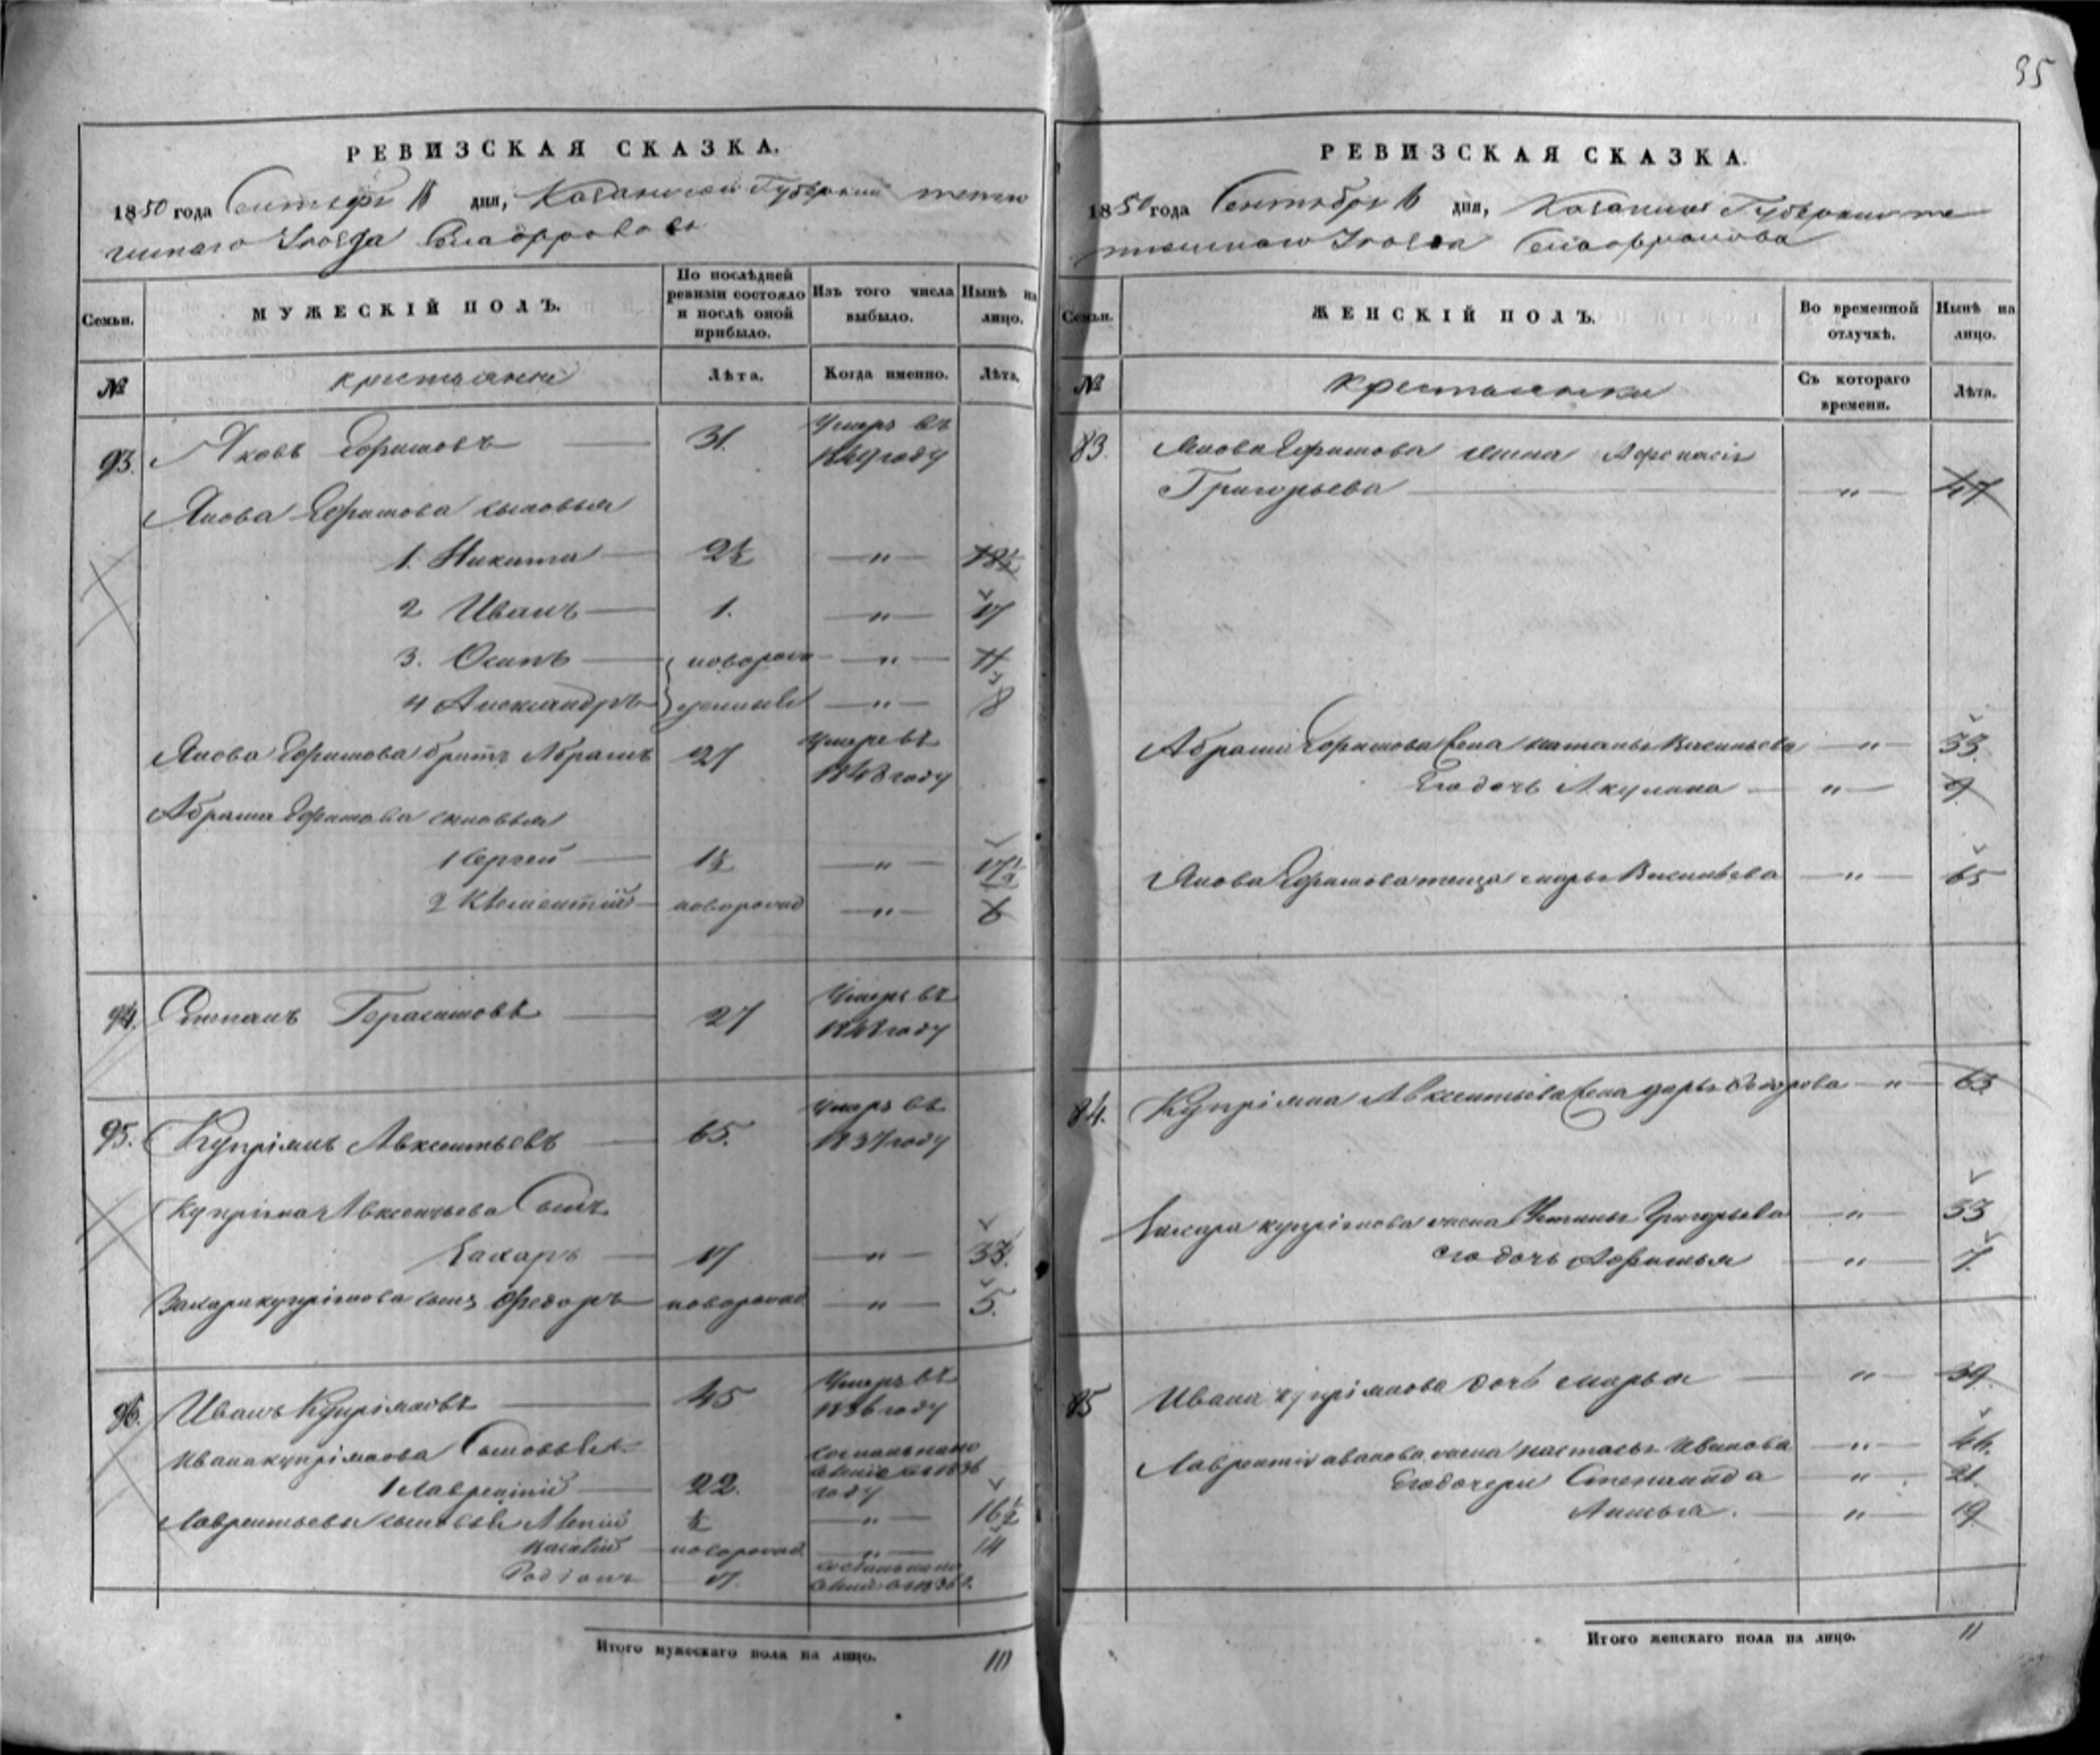 35
РЕВИЗСКАЯ СКАЗКА.
1850 года Сентября дня, Казанской Губернии тетю
шскаго Уезда Села
Семьи.
МУЖЕСКІЙ ПОЛЪ.
По послѣдней ревизіи состояло и послѣ оной прибыло.
Изъ того числа выбыло.
Нынѣ на лицо.
№
крестьяне
Лѣта.
Когда именно.
Лѣта.
93. Яковъ Ефимовъ 31. Умеръ въ 1849 году
Якова Ефимова сыновья
1. Никита 2½ — " — 18½
2 Иванъ 1. — " — 17
3. Осипъ новорож — " — 11
4 Александръ денные — " — 8
Якова Ефимова братъ Абрамъ 27 Умеръ въ 1848 году
Абрама Ефимова сыновья
1 Сергей 1½ — " — 17½
2 Клементий новорожд — " — 6
94. Степанъ Герасимовъ 27 Умеръ въ 1848 году
95. Купріянъ Авксентьевъ 65. Умеръ въ 1837 году
Купріяна Авксентьева Сынъ
Захаръ 17 — " — 33.
Захара купріянова сынъ Федоръ новорожд — " — 5.
96. Иванъ Купріяновъ 45 Умеръ въ 1836 году
Ивана купріянова Сыновья
1 Лаврентий 22. Сосланъ на поселение в 1836 году
Лаврентьевы сыновья ½ — " — 16½
Василий новорожд — " — 14
Родіонъ 17. сосланъ на по
Итого мужескаго пола на лицо. 10
РЕВИЗСКАЯ СКАЗКА.
1850 года Сентября дня, Казанской Губернии те
тюшскаго Уезда Села
Семьи.
ЖЕНСКІЙ ПОЛЪ.
Во временной отлучкѣ.
Нынѣ на лицо.
№
крестьянки
Съ котораго времени.
Лѣта.
83. Якова Ефимова жена Афонасія
Григорьева — " — 47
Абрама Ефимова жена Наталья Васильева — " — 33.
Его дочь Акулина — " — 9
Якова Ефимова теща Марья Васильева — " — 65
84. Купріяна Авксентьева жена Дарья Федорова — " — 63
Захара купріянова жена Устинья Григорьева — " — 33
его дочь Афимья — " — 7.
85 Ивана купріянова дочь Марья " — 39.
Лаврентия иванова жена Наталья Иванова — " — 44.
Его дочери Степанида " 21.
Анисья. — " — 19
Итого женскаго пола на лицо. 11